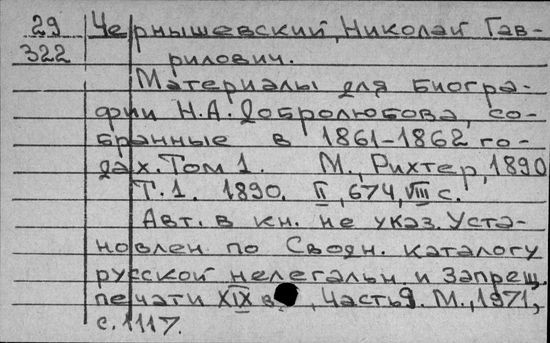 29 Чернышевский, Николай Гав-
322 рилович.
Материалы для биогра-
фии Н.А. Добролюбова, со-
бранные в 1861-1862 го-
дах. Том 1. М., Рихтер, 1890
Т.1. 1890. II, 674, VIII с.
Авт. в кн. не указ. Уста-
новлен по Сводн. каталогу
русской нелегальн. и запрещ.
печати XIX в. , Часть 9. М., 1971,
с. 1117.